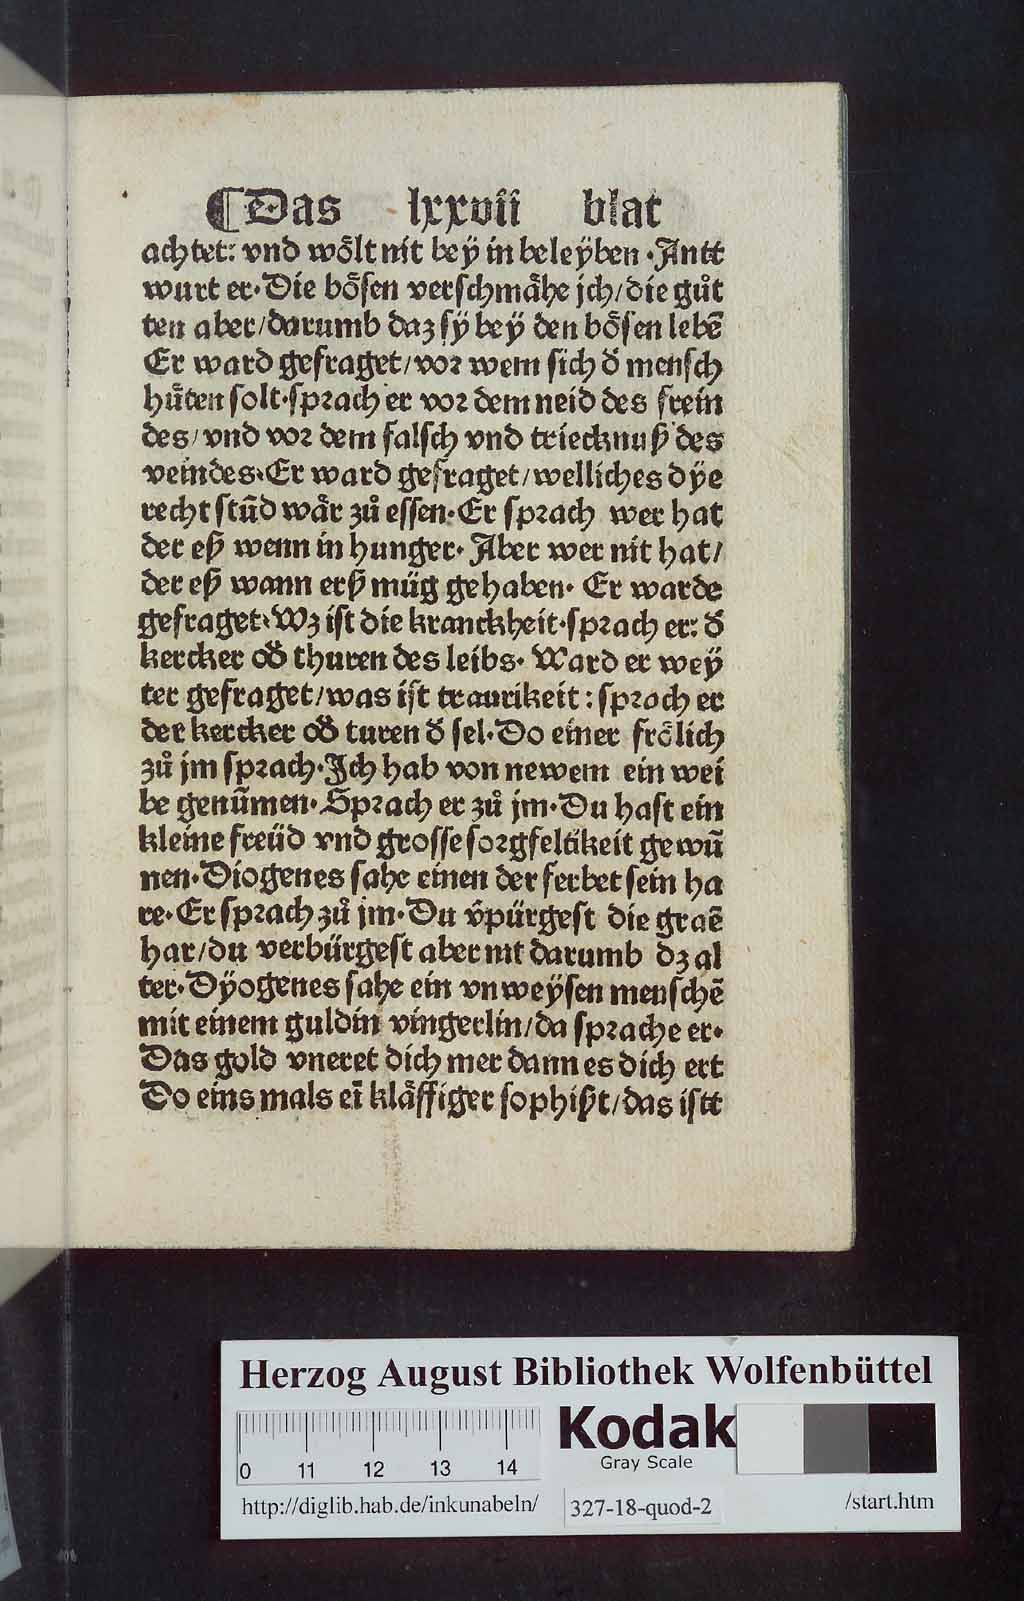 ¶Das lxxvii blat
achtet: vnd woͤlt nit bey in beleyben ·Antt
wurt er· Die boͤsen verschmaͤhe jch/die guͦt
ten aber/darumb daz sÿ beÿ den boͤsen lebē
Er ward gefraget/vor wem sich d̕ mensch
huͤten solt·sprach er vor dem neid des frein
des/vnd vor dem falsch vnd triecknuß des
veindes·Er ward gefraget/welliches dÿe
recht stūd waͤr zuͦ essen·Er sprach wer hat
der eß wenn in hunger· Aber wer nit hat/
der eß wann erß müg gehaben· Er warde
gefraget·Wz ist die kranckheit·sprach er: d̕
kercker od̕ thuren des leibs· Ward er weÿ
ter gefraget/was ist traurikeit: sprach er
der kercker od̕ turen d̕ sel·Do einer froͤlich
zuͦ jm sprach·Jch hab von newem ein wei
be genūmen·Sprach er zuͦ jm·Du hast ein
kleine freüd vnd grosse sorgfeltikeit gewū
nen·Diogenes sahe einen der ferbet sein ha
re·Er sprach zuͦ jm·Du v̕pürgest die graē
har/du verbürgest aber nit darumb dz al
ter·Dÿogenes sahe ein vnweÿsen menschē
mit einem guldin vingerlin/da sprache er·
Das gold vneret dich mer dann es dich ert
Do eins mals eī klaͤffiger sophißt/das istt
Herzog August Bibliothek Wolfenbüttel
Kodak
Gray Scale
0 11 12 13 14
http://diglib.hab.de/inkunabeln/ 327-18-quod-2 /start.htm